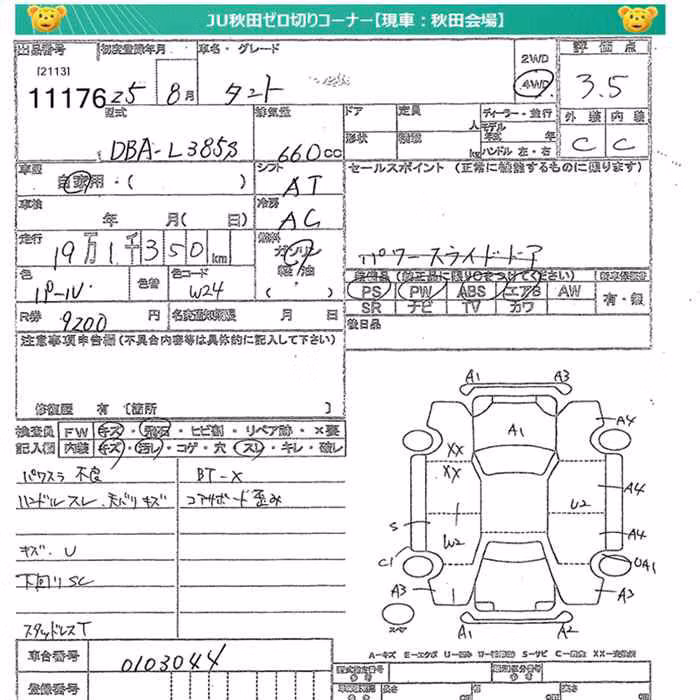 JU秋田ゼロ切りコーナー【現車：秋田会場】
出品番号 初度登録年月 車名・グレード 2WD 評価点
[2113]
11176 25 8月 タント 4WD 3.5
型式 排気量 ドア 定員 ディーラー・並行 外装 内装
DBA-L385S 660cc 形状 積載 人 モデル年式 年 C C
kg ハンドル 左・右
車歴 シフト セールスポイント (正常に機能するものに限ります)
自家用・( ) AT
車検 冷房
年 月( 日) AC
走行 燃料
19万1千350km ガソリン パワースライドドア
色 色替 色コード 軽油
パール W24 ( )
PS PW ABS エアB AW 有・無
R券 9200 円 名変通知期限 月 日 SR ナビ TV カワ
後日品
注意事項申告欄(不具合内容等は具体的に記入して下さい)
修復歴 有 [箇所 ]
検査員 FW キズ・飛石・ヒビ割・リペア跡・×要
記入欄 内装 キズ・汚レ・コゲ・穴・スレ・キレ・破レ
パワスラ 不良 BT-X
ハンドルスレ.天バリキズ コアサポート歪み
キズ.U
下回りSC
スタッドレスT
A1 A3
A1 A4
XX
XX A4
U2
S W2 A4
C1 UA1
A3 A3
スペア A1 A2
A=キズ E=エクボ U=凹み W=補修跡 S=サビ C=腐食 XX=交換済
車台番号 0103044
登録番号